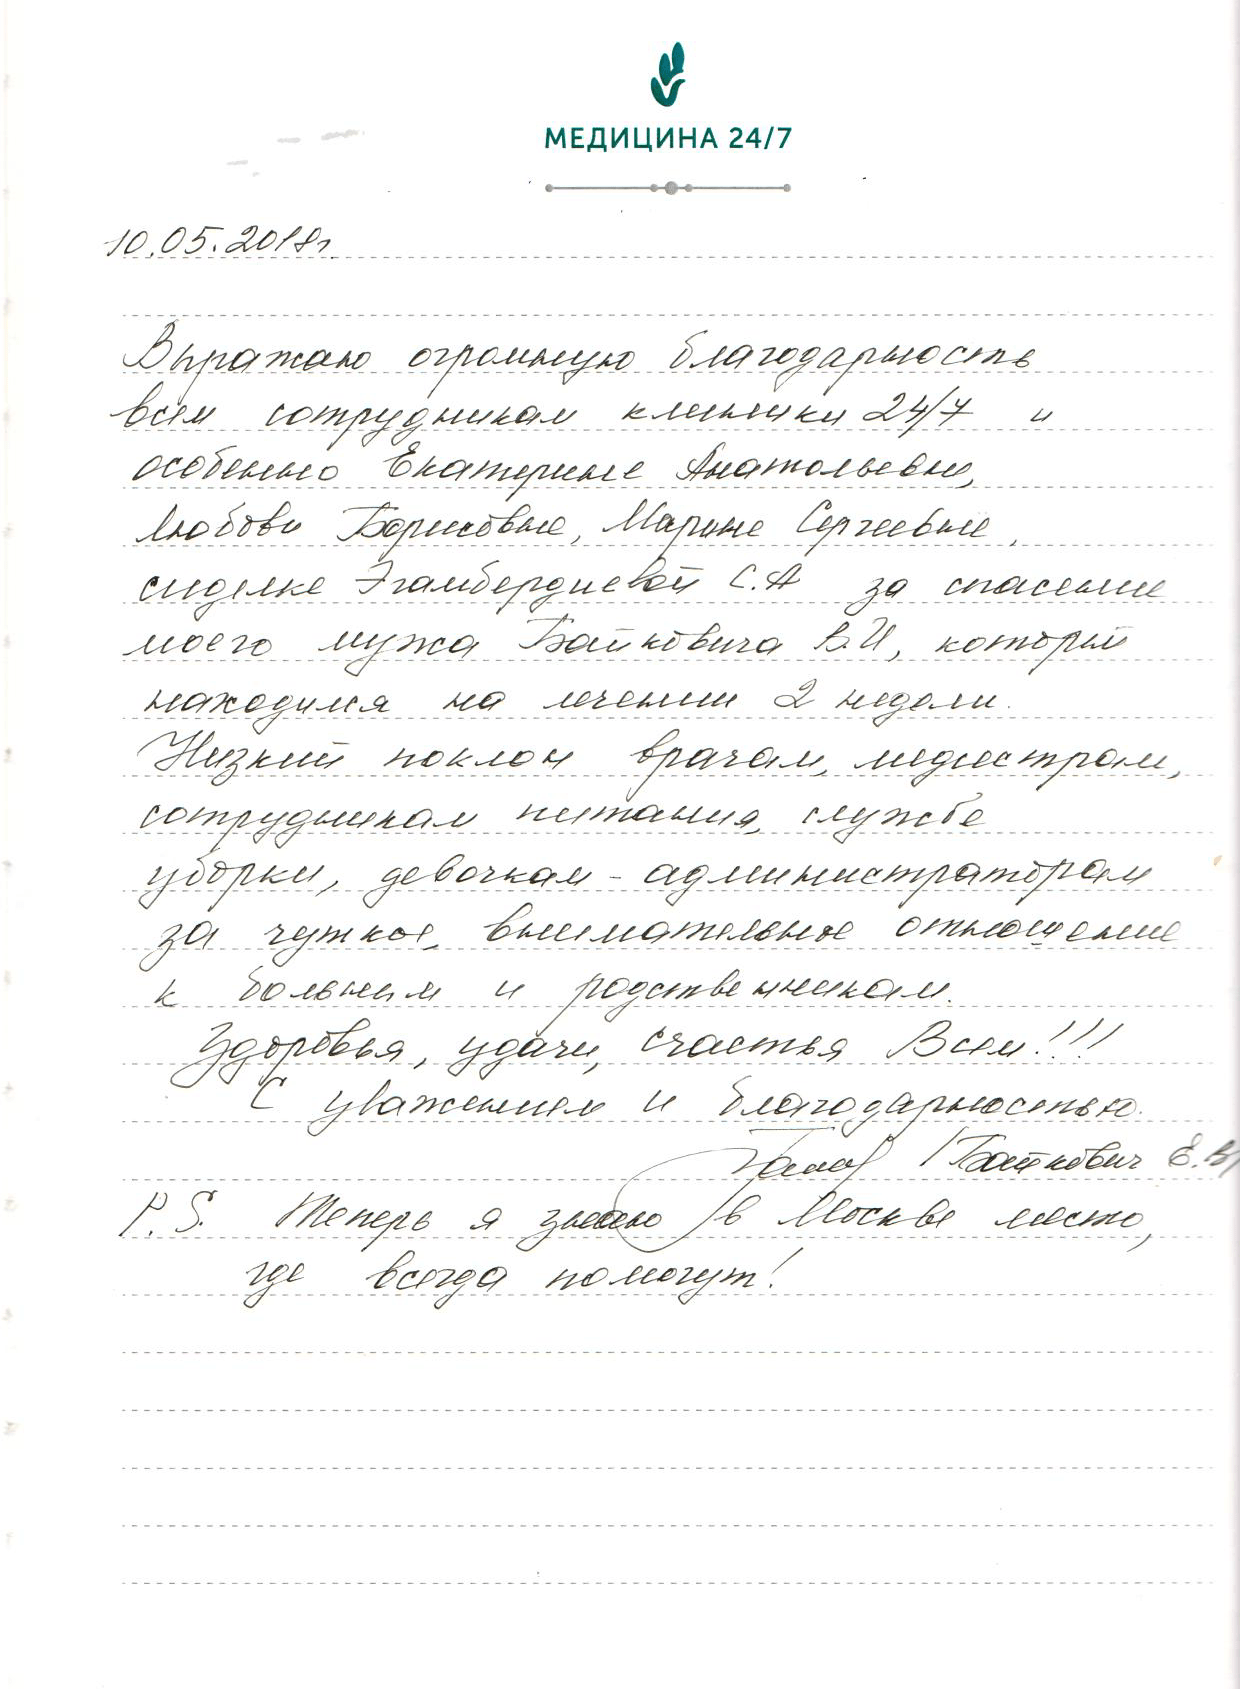 МЕДИЦИНА 24/7
10.05.2018г.
Выражаю огромную благодарность
всем сотрудникам клиники 24/7 и
особенно Екатерине Анатольевне,
Любови Борисовне, Марине Сергеевне,
сиделке Эгамбердиевой С.А за спасение
моего мужа Байковича В.И, который
находился на лечении 2 недели.
Низкий поклон врачам, медсестрам,
сотрудникам питания, службе
уборки, девочкам-администраторам
за чуткое, внимательное отношение
к больным и родственникам.
Здоровья, удачи, счастья Всем!!!
С уважением и благодарностью.
/Байкович Е.В/
P.S. Теперь я знаю в Москве место,
где всегда помогут!